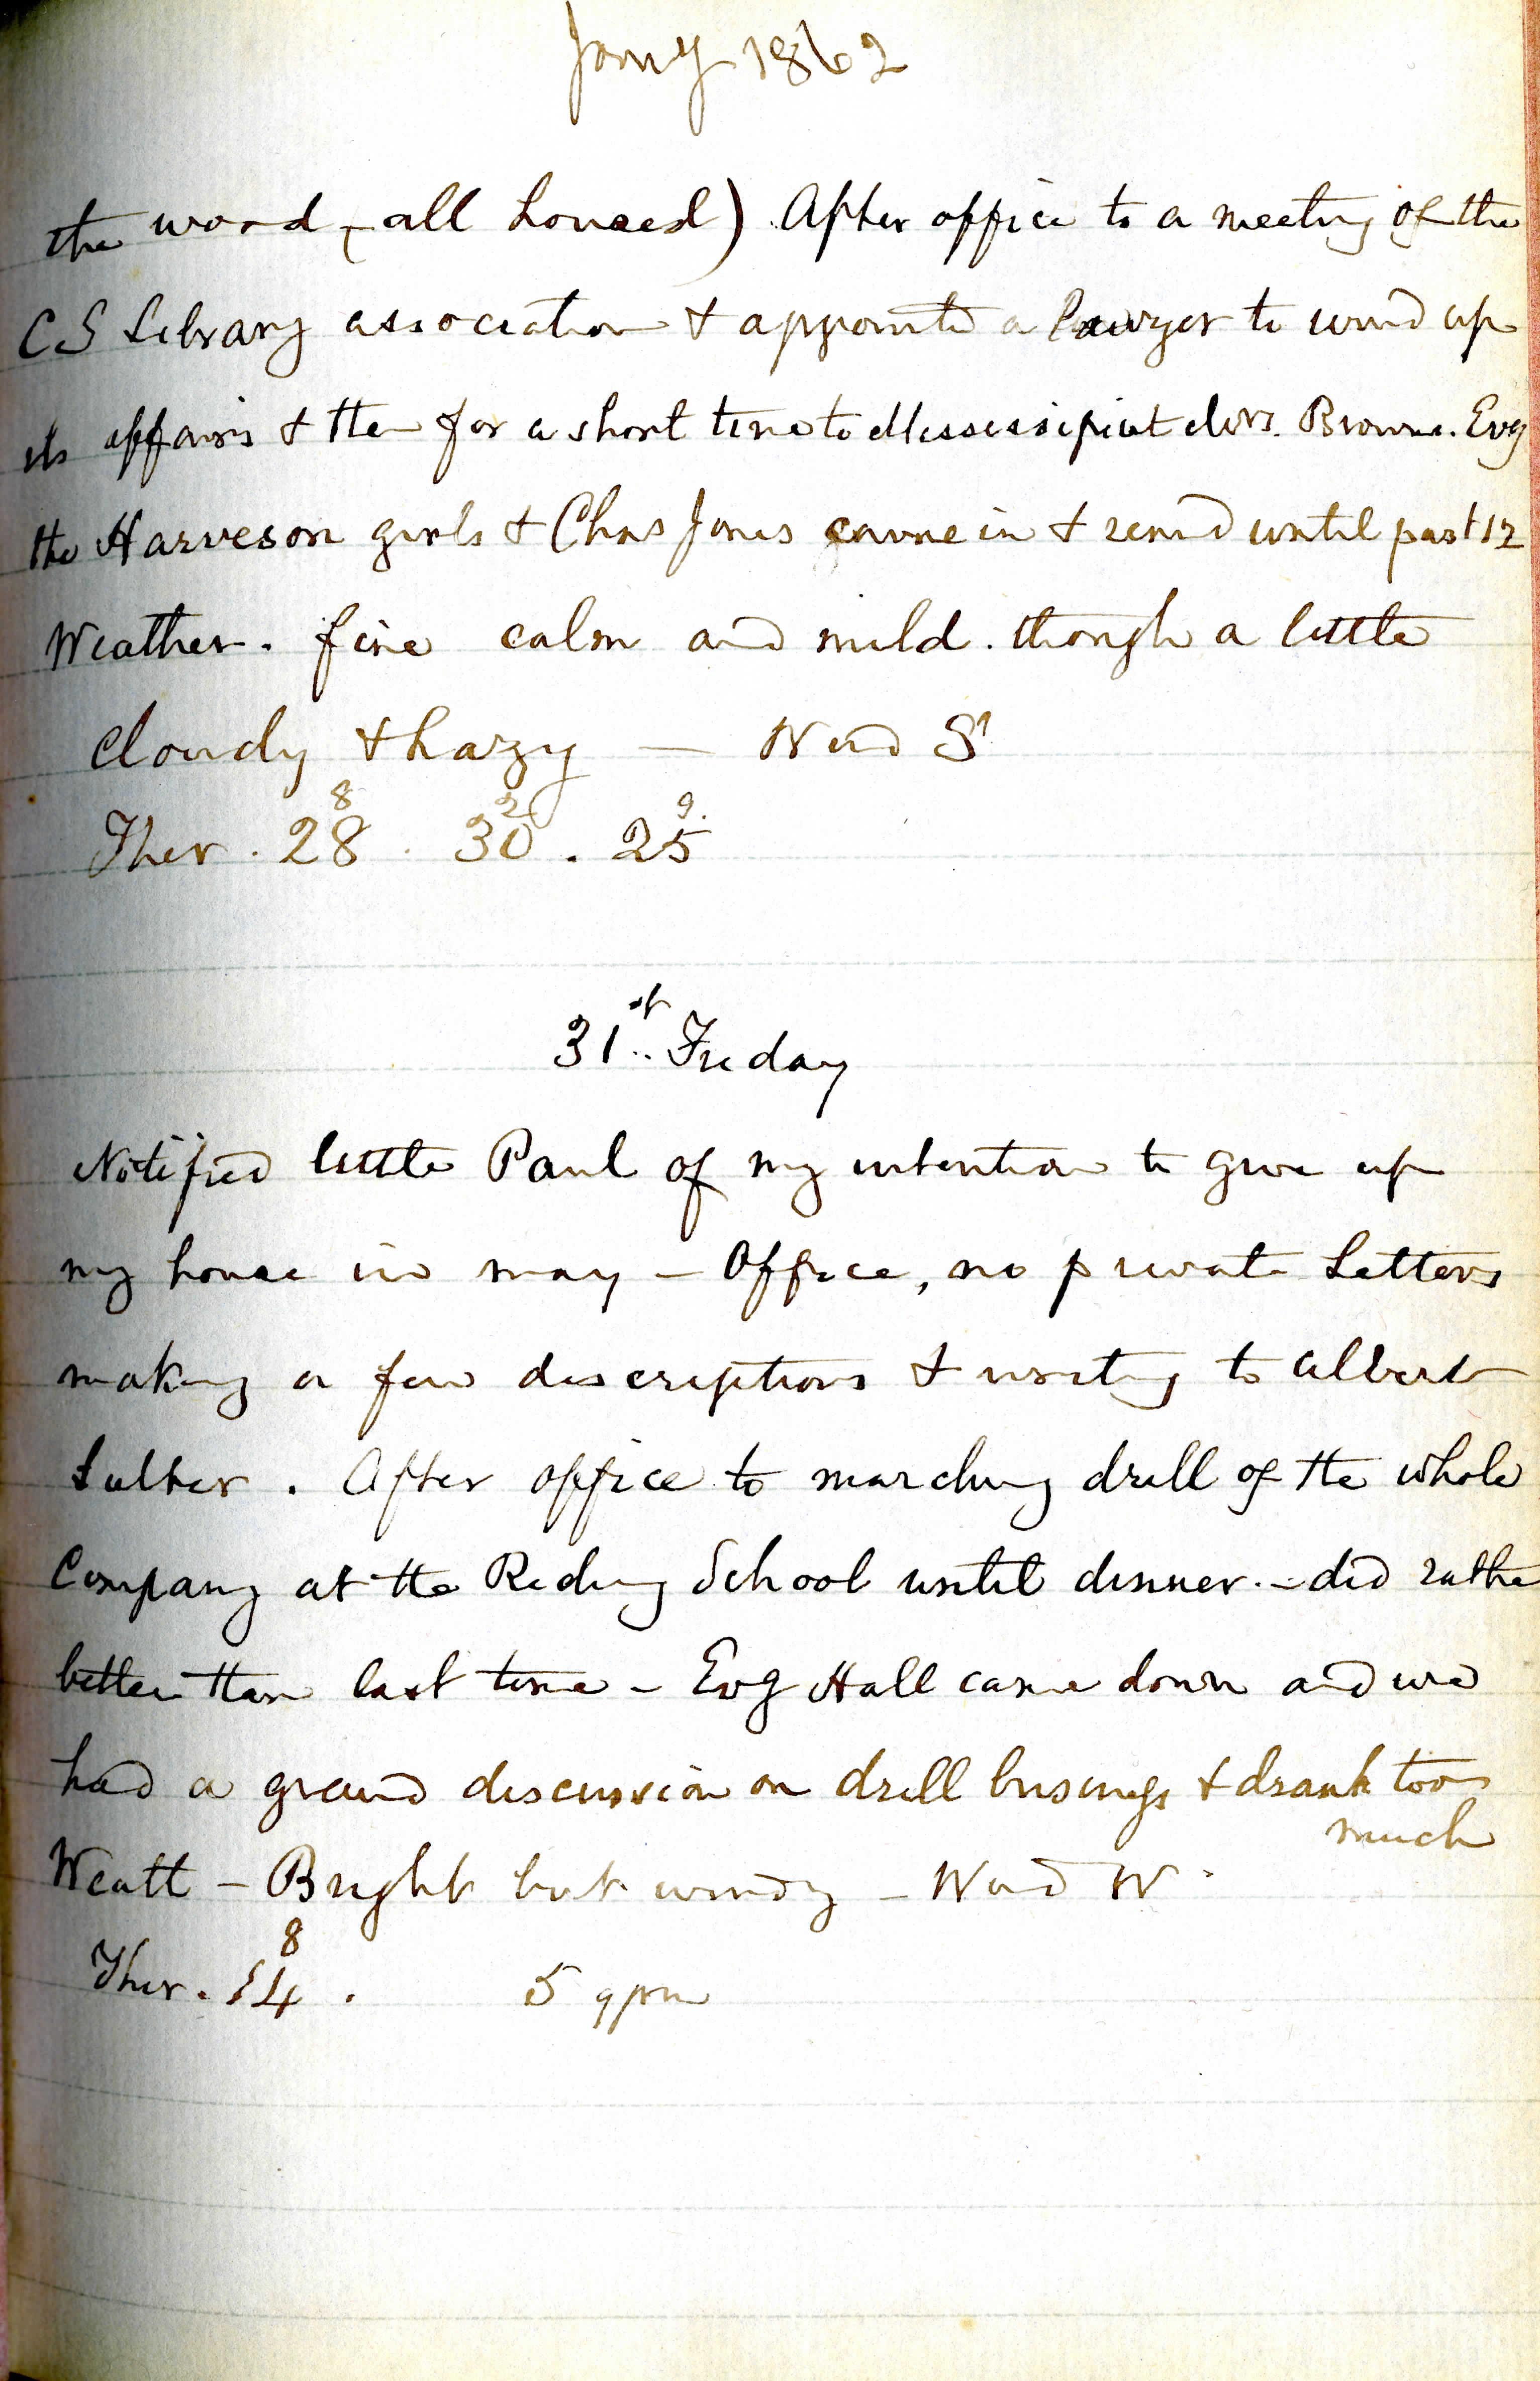 Jany 1862
the word, all housed) After office to a meeting of the
C S Library association & appointed a lawyer to wind up
its affairs & then for a short time to Mississipi at Mrs. Browns. Evg
the Harveson girls & Chas Jones came in & remd until past 12
Weather. fine calm and mild. though a little
cloudy & hazy — Wind S
8 2 9.
Ther. 28 . 30 . 25
31st Friday
Notified little Paul of my intention to give up
my house in may - Office, no private Letters
making a few descriptions & writing to Albert
. After office to marching drill of the whole
Company at the Riding School until dinner. - did rather
better than last time - Evg Hall came down and we
had a grand discussion on drill & drank too
much
Weatt - Bright but windy - Wind W.
8
Ther. 14 . 5 9pm